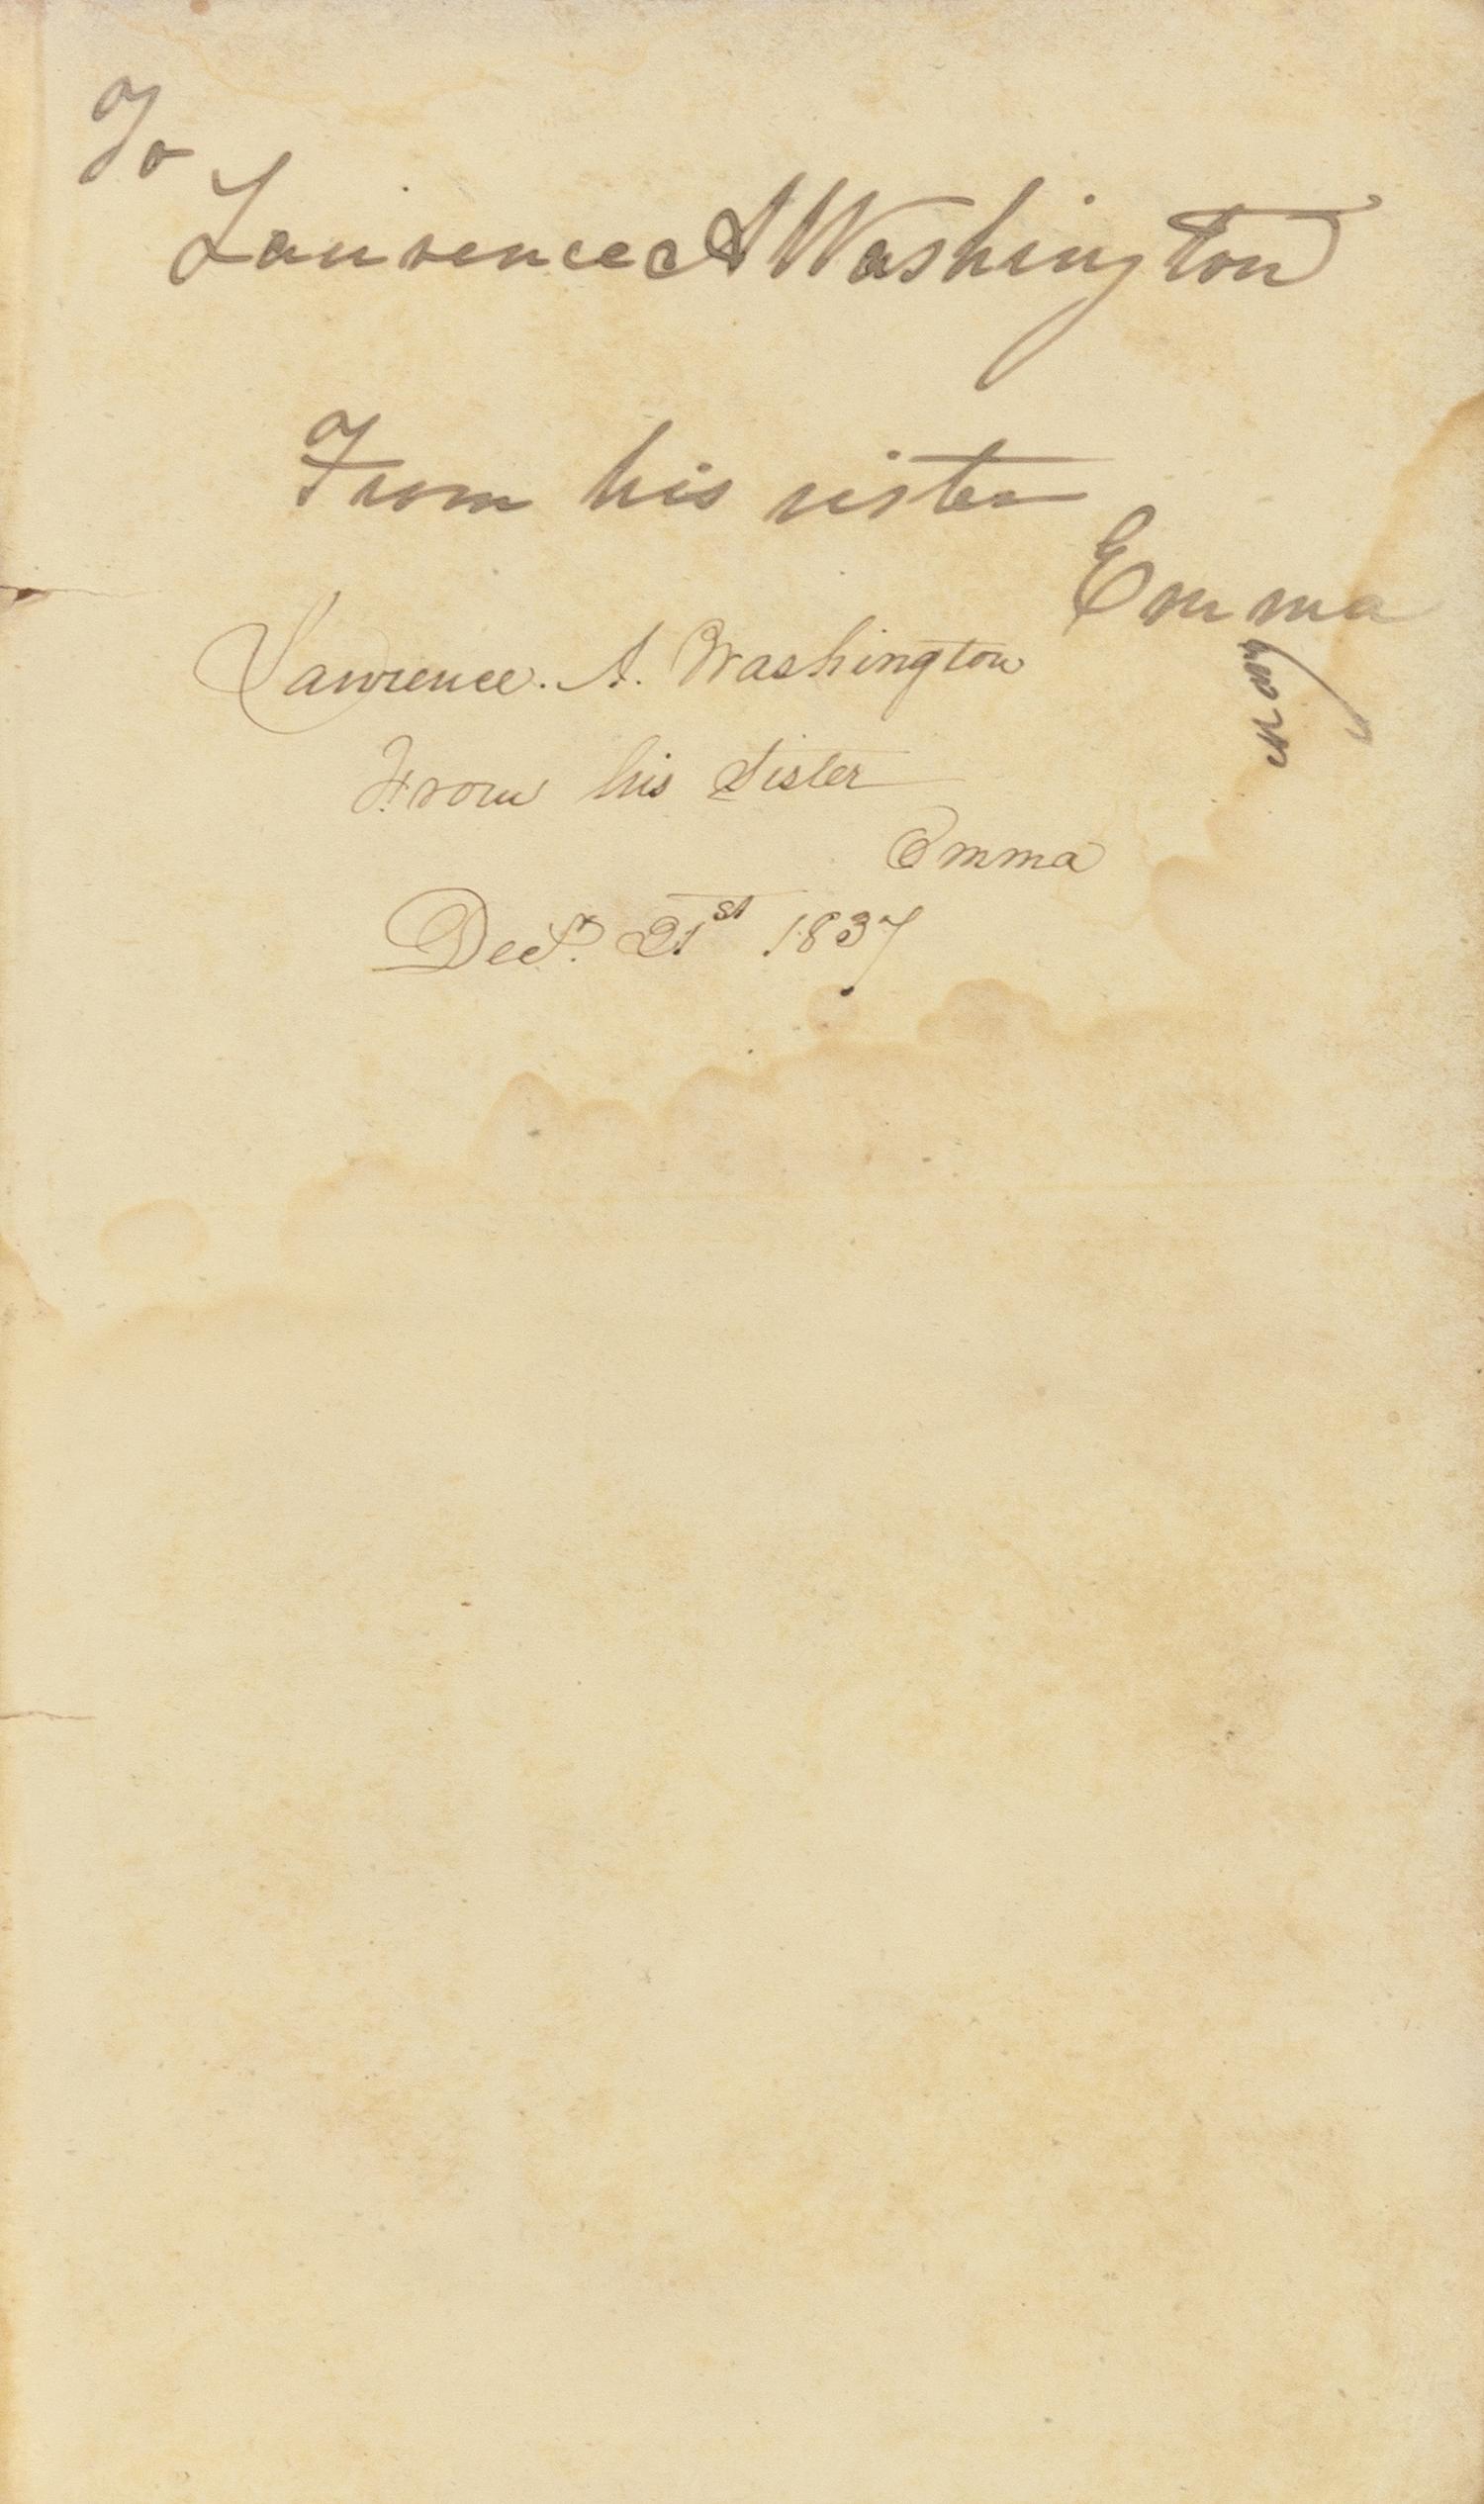 To
Laurence A Washington
From his sister
Emma
Lawrence. A. Washington
From his Sister
Emma
Decr. 21st 1837